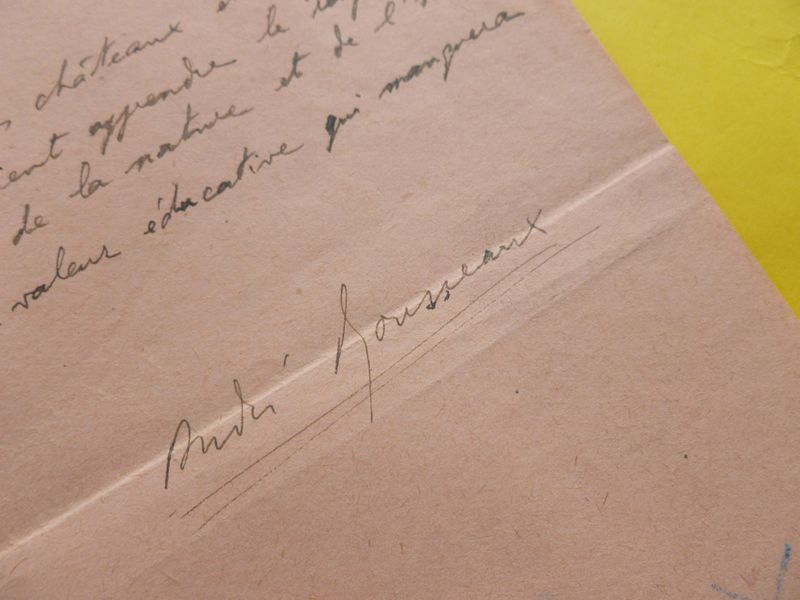 châteaux
apprendre le
de la nature et de l'
valeur éducative qui manquera
André Rousseaux